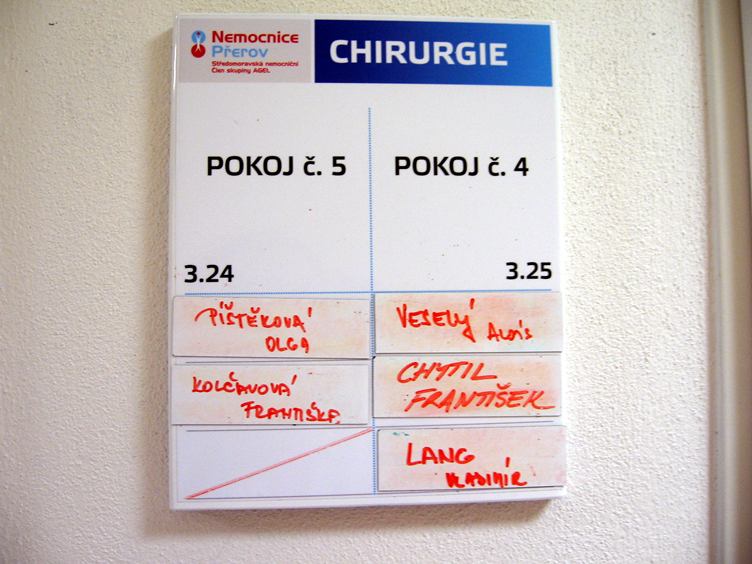 Nemocnice
Přerov
Středomoravská nemocniční
Člen skupiny AGEL
CHIRURGIE
POKOJ č. 5
3.24
PÍŠTĚKOVÁ
OLGA
KOLČAVOVÁ
FRANTIŠKA
POKOJ č. 4
3.25
VESELÝ Alois
CHYTIL
FRANTIŠEK
LANG
VLADIMÍR